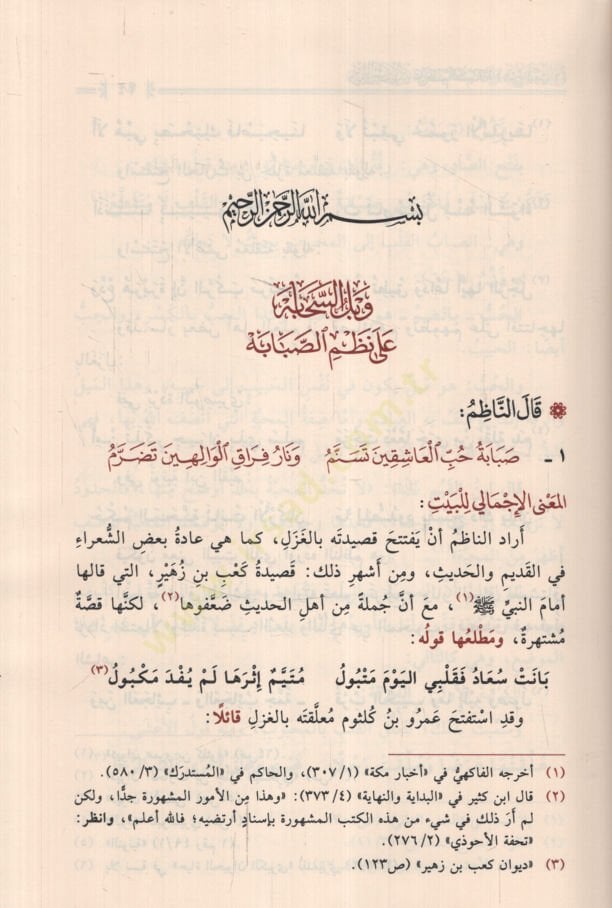 بسم الله الرحمن الرحيم
وَبْلُ السَّحَابَه
عَلَى نَظْمِ الصَّبَابَه
قَالَ النَّاظِمُ:
١ ـ صَبَابَةُ حُبِّ الْعَاشِقِينَ تَسَنَّمُ وَنَارُ فِرَاقِ الْوَالِهِينَ تَضَرَّمُ
المَعْنى الإِجْمَالي لِلْبَيْتِ:
أَراد الناظمُ أنْ يَفتتحَ قصيدتَه بالغَزَلِ، كما هي عادةُ بعضِ الشُّعراءِ
في القديمِ والحَديثِ، ومِن أَشهرِ ذلك: قصيدةُ كَعْبِ بنِ زُهَيْرٍ، التي قالها
أمامَ النبيِّ ﷺ(١)، معَ أنَّ جُملةً مِن أهلِ الحديثِ ضَعَّفوها(٢)، لكنَّها قصَّةٌ
مُشتهرةٌ، ومَطْلعُها قولُه:
بَانَتْ سُعَادُ فَقَلْبِي اليَوْمَ مَتْبُولُ مُتَيَّمٌ إِثْرَهَا لَمْ يُفْدَ مَكْبُولُ(٣)
وقدِ اسْتفتحَ عَمرُو بنُ كُلثوم مُعلَّقتَه بالغزلِ قائلًا:
(١) أخرجه الفاكهيُّ في «أخبار مكة» (٣٠٧/١)، والحاكم في «المُستدرَك» (٥٨٠/٣).
(٢) قال ابن كثير في «البداية والنهاية» (٣٧٣/٤): «وهذا مِن الأمور المشهورة جدًّا، ولكن
لم أرَ ذلك في شيء من هذه الكتب المشهورة بإسنادٍ أرتضيه؛ فالله أعلم»، وانظر:
«تحفة الأحوذي» (٢٧٦/٢).
(٣) «ديوان كعب بن زهير» (ص١٢٣).